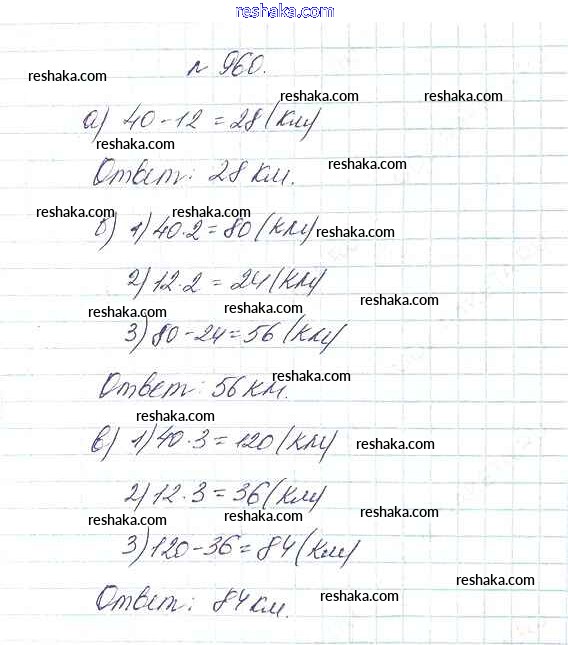 reshaka.com
№ 960.
reshaka.com
reshaka.com reshaka.com
а) 40-12=28(км)
reshaka.com
reshaka.com
Ответ: 28 км.
reshaka.com reshaka.com
б) 1) 40·2=80(км)
reshaka.com
2) 12·2=24(км)
reshaka.com
reshaka.com reshaka.com
3) 80-24=56(км)
reshaka.com
Ответ: 56 км.
reshaka.com
в) 1) 40·3=120(км)
reshaka.com
2) 12·3=36(км)
reshaka.com reshaka.com
3) 120-36=84(км)
reshaka.com
Ответ: 84 км.
reshaka.com